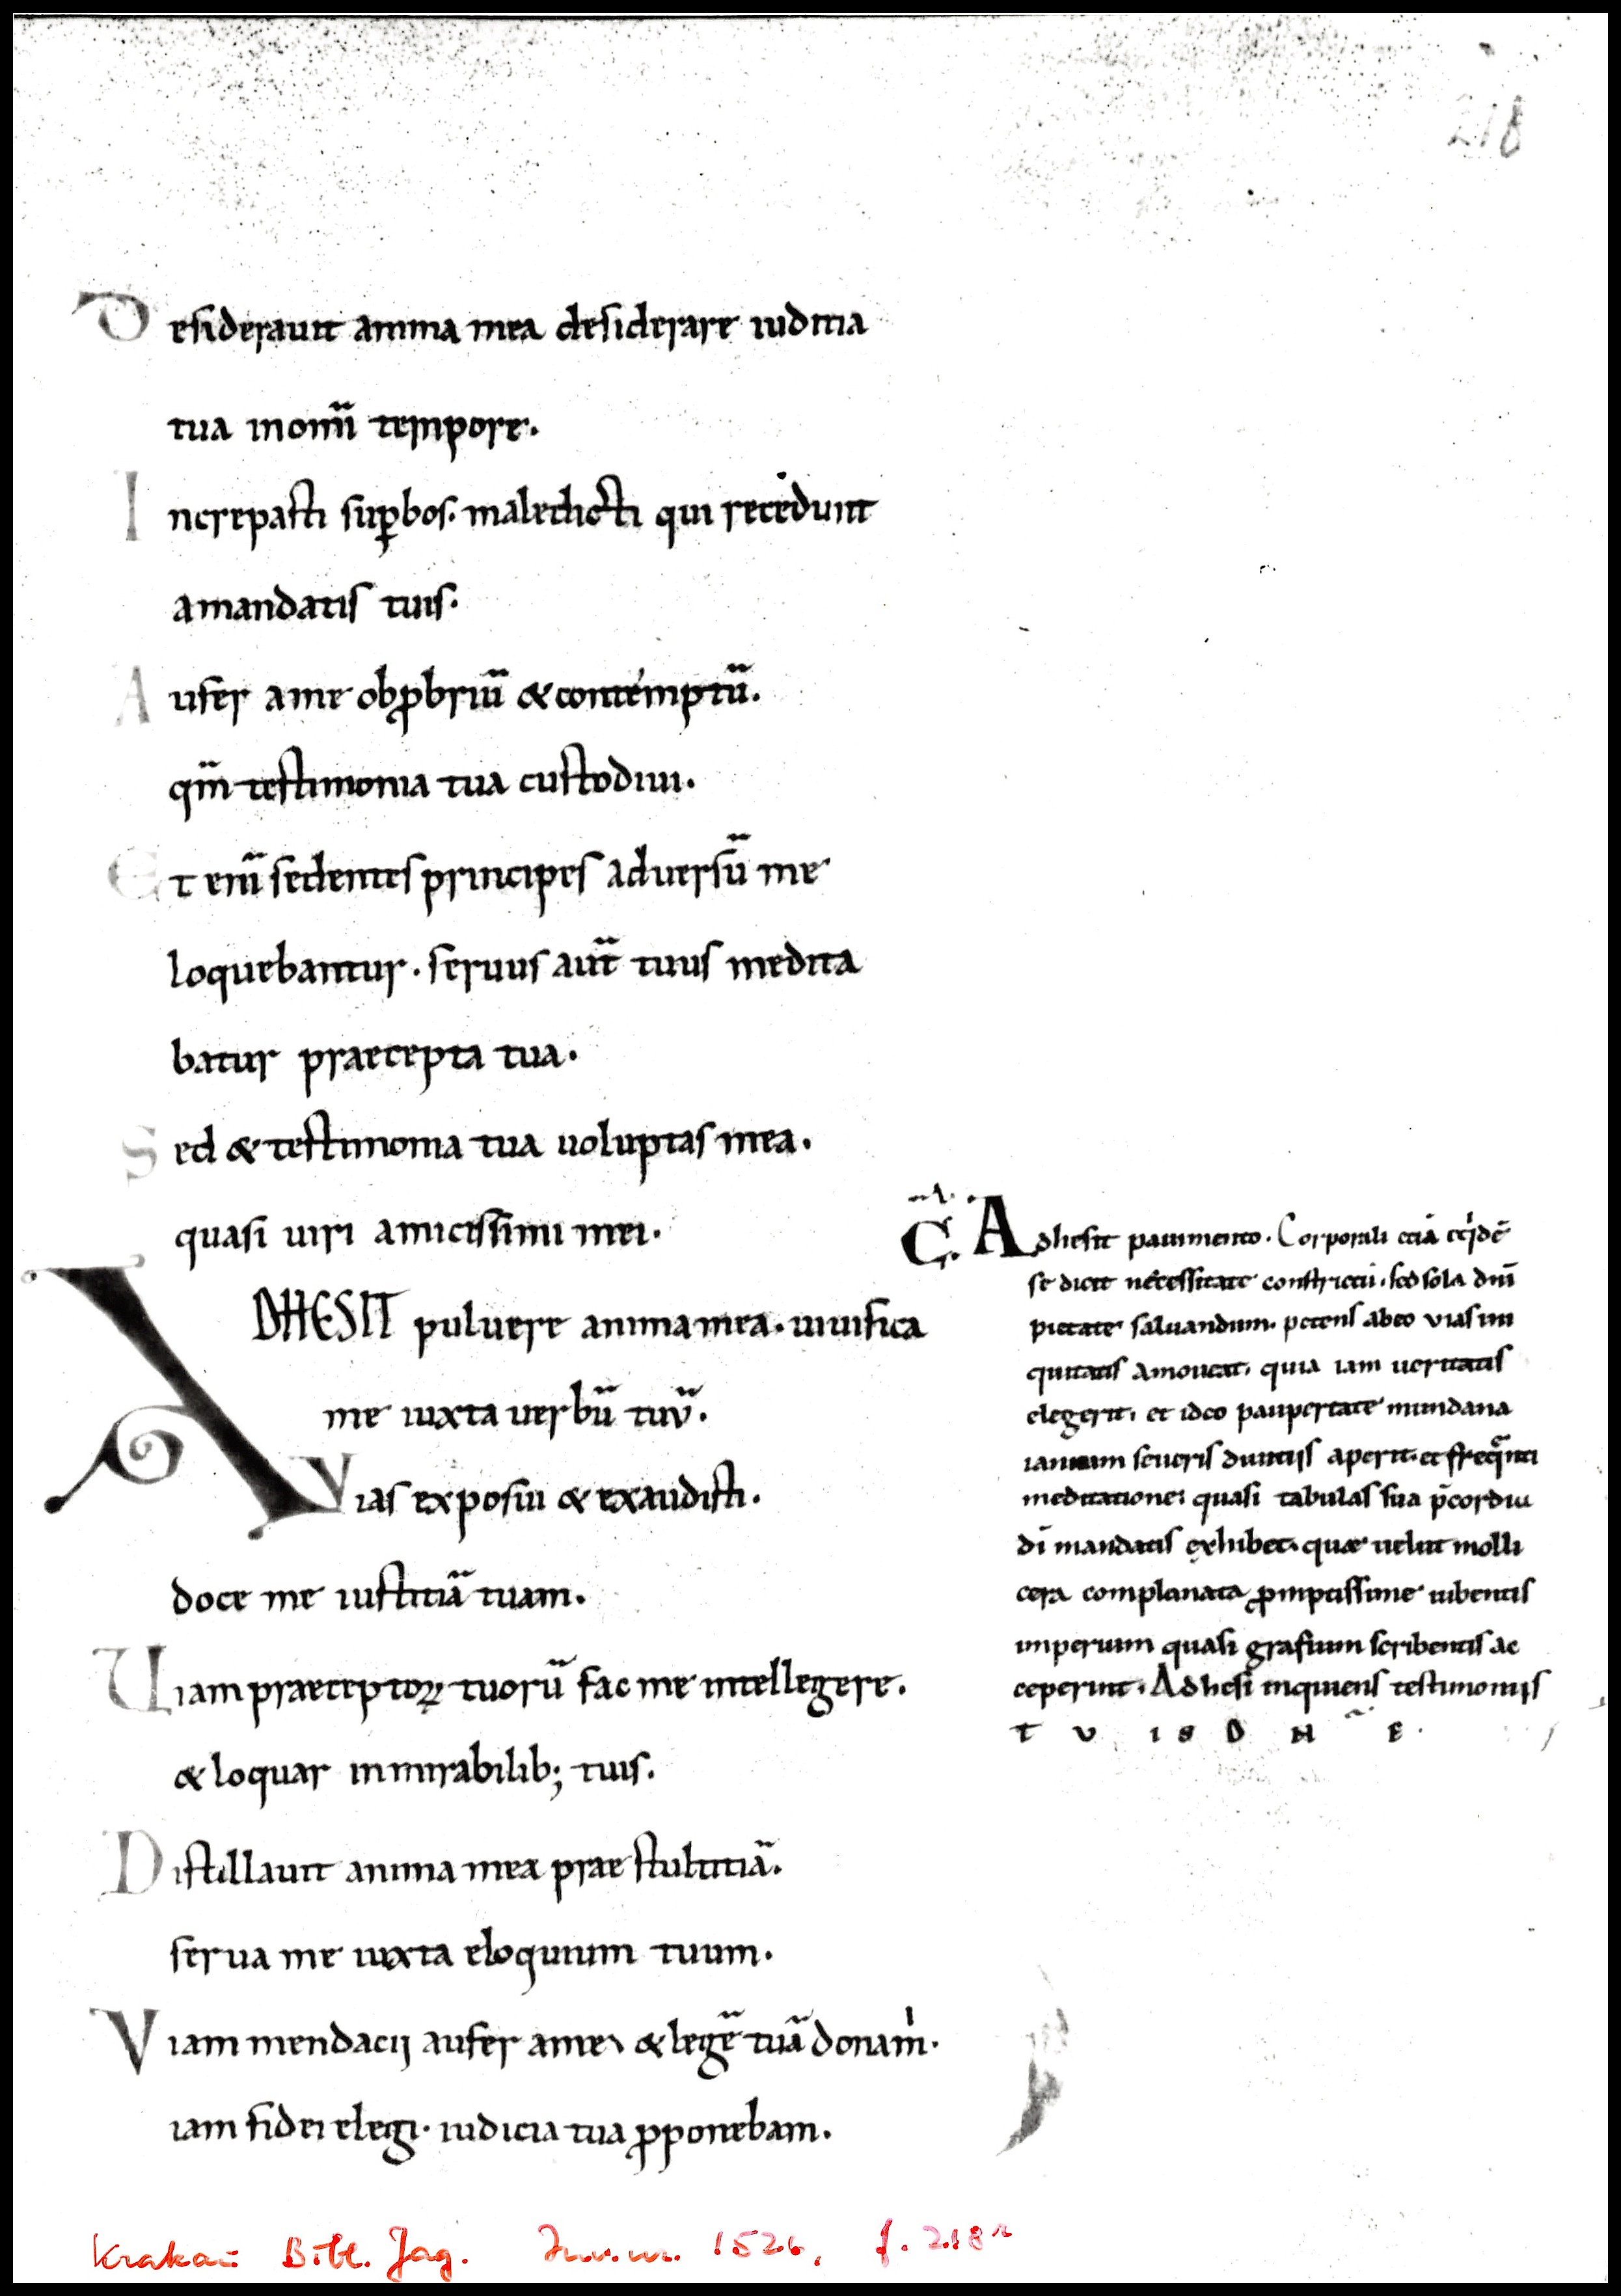 218
Desiderauit anima mea desiderare iudicia
tua inom̅i tempore.
Increpasti sup̱bos. maledicti qui recedunt
amandatis tuis.
Aufer ame obꝓbriu̅ & contemptu̅.
qm̅ testimonia tua custodiui.
Et eni̅ sedentes principes aduersu̅ me
loquebantur. seruus aut̅ tuus medita
batur praecepta tua.
Sed & testimonia tua uoluptas mea.
quasi uiri amicissimi mei.
ADHESIT puluere anima mea. uiuifica
me iuxta uerbu̅ tuu̅.
Vias exposiui & exaudisti.
doce me iustitia̅ tuam.
Uiam praeceptoꝝ tuoru̅ fac me intellegere.
& loquar inmirabilib; tuis.
Distillauit anima mea prae stultitia̅.
serua me iuxta eloquium tuum.
Viam mendacij aufer ame, & lege̅ tua̅ dona m̍.
iam fidei elegi. iudicia tua ꝓponebam.
C̅. Adhesit pauimento. Corporali etia̅
se dicit necessitate constrictu̅. sed sola dni̅
pietate saluandum. petens abeo uias ini
quitatis amoueat. quia iam ueritatis
elegerit. et ideo paupertate mundana
ianuam seueris diuitijs aperit. et freq̅nti
meditatione. quasi tabulas sua p̅cordia
di̅ mandatis exhibet. quae uelut molli
cera complanata ꝓmptissime iubentis
imperium quasi grafium scribentis ac
ceperint. Adhesi inquiens testimonijs
T V I S D N̅ E.
Krakau Bibl. Jag. Inv. nr. 1526, f. 218r